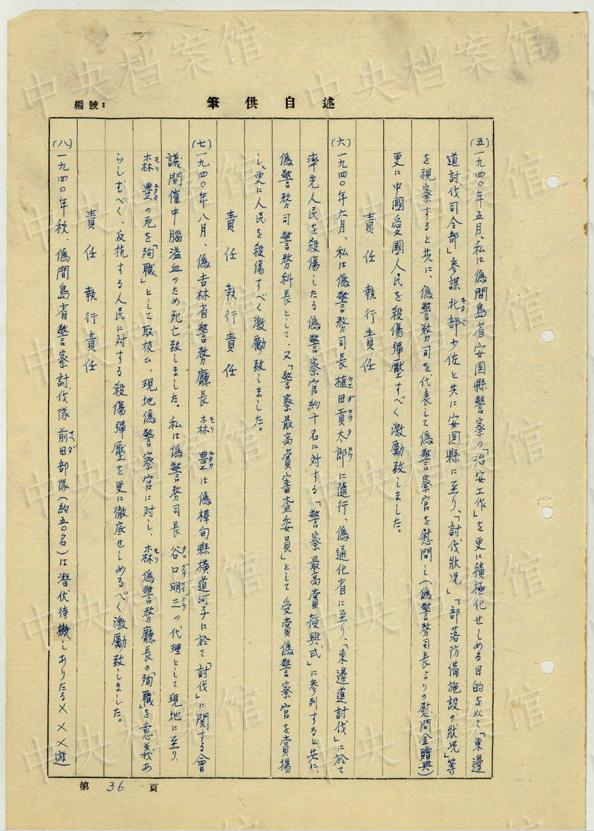 編號：
筆供自述
(五)一九四〇年五月、私は偽間島省安図縣警察の「治安工作」を更に積極化せしめる目的を以て「東邊
道討伐司令部」参謀北部少佐と共に安図縣に至り、「討伐狀況」「部落防備施設の狀況」等
を視察すると共に、偽警務司を代表して偽警察官を慰問し(偽警務司長よりの慰問金贈與)
更に中國愛國人民を殺傷彈壓すべく激勵致しました。
責任　執行責任
(六)一九四〇年六月、私は偽警務司長植田貢太郎に随行、偽通化省に至り、「東邊道討伐」に於て
率先人民を殺傷したる偽警察官約十名に対する「警察最高賞授與式」に参列すると共に、
偽警務司警務科長として、又「警察最高賞審査委員」として受賞偽警察官を賞揚
し、更に人民を殺傷すべく激勵致しました。
責任　執行責任
(七)一九四〇年八月、偽吉林省警務廳長森豊は偽樺甸縣横道河子に於て「討伐」に関する會
議開催中腦溢血のため死亡致しました。私は偽警務司長谷口明三の代理として現地に至り、
森豊の死を「殉職」として取扱ひ、現地偽警察官に対し、森偽警務廳長の「殉職」を意義あ
らしむべく、反抗する人民に対する殺傷彈壓を更に徹底せしめるべく激勵致しました。
責任　執行責任
(八)一九四〇年秋、偽間島省警察討伐隊前田部隊(約五〇名)は潜伏待機しありたる×××遊
第36頁
中央档案馆